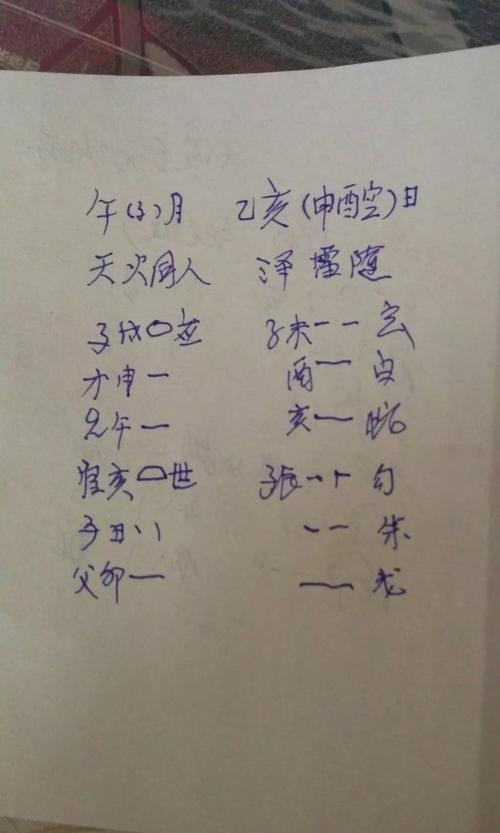 午(子)月 乙亥(申酉空)日
天火同人 泽雷随
子戌○应 子未-- 玄
才申— 酉— 白
兄午— 亥— 蛇
官亥○世 子辰-- 勾
子丑\\ -- 朱
父卯— — 龙